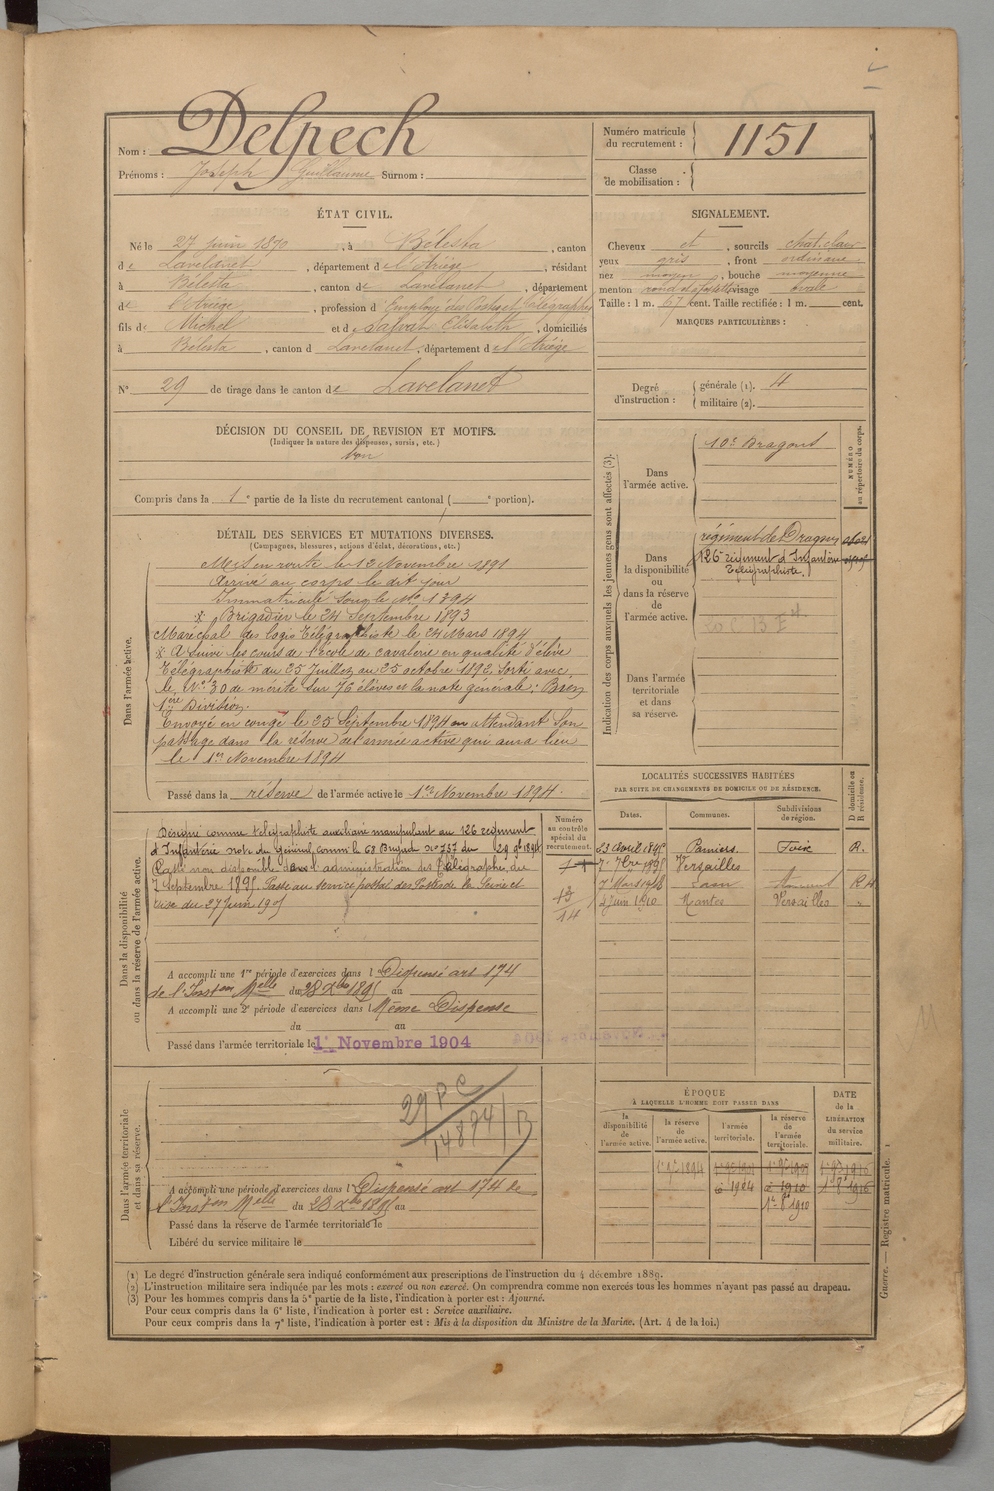 Nom : Delpech
Prénoms : Joseph Guillaume Surnom :
Numéro matricule du recrutement : 1151
Classe de mobilisation :
ÉTAT CIVIL.
Né le 27 juin 1870, à Bélesta, canton
de Lavelanet, département de l'Ariège, résidant
à Bélesta, canton de Lavelanet, département
de l'Ariège, profession d'Employé des Postes et Télégraphes
fils de Michel et de Salvat Elisabeth, domiciliés
à Bélesta, canton d Lavelanet, département de l'Ariège
N° 29 de tirage dans le canton de Lavelanet
SIGNALEMENT.
Cheveux et, sourcils chat. clair
yeux gris, front ordinaire
nez moyen, bouche moyenne
menton rond visage ovale
Taille : 1 m. 67 cent. Taille rectifiée : 1 m. cent.
MARQUES PARTICULIÈRES :
Degré d'instruction : générale (1). 4
militaire (2).
DÉCISION DU CONSEIL DE REVISION ET MOTIFS.
(Indiquer la nature des dispenses, sursis, etc.)
bon
Compris dans la 1e partie de la liste du recrutement cantonal ( e portion).
DÉTAIL DES SERVICES ET MUTATIONS DIVERSES.
(Campagnes, blessures, actions d'éclat, décorations, etc.)
Dans l'armée active.
Mis en route le 12 Novembre 1891
Arrivé au corps le dit jour
Immatriculé sous le No 1394
* Brigadier le 24 Septembre 1893
Maréchal des logis Télégraphiste le 24 Mars 1894
* A suivi les cours de l'école de cavalerie en qualité d'élève
Télégraphiste du 25 Juillet au 25 octobre 1892. Sorti avec
le No 30 de mérite sur 76 élèves et la note générale : Bien
1ère Division.
Envoyé en congé le 25 Septembre 1894 en attendant son
passage dans la réserve de l'armée active qui aura lieu
le 1er Novembre 1894
Passé dans la réserve de l'armée active le 1er Novembre 1894.
Indication des corps auxquels les jeunes gens sont affectés (3).
NUMÉRO au répertoire du corps.
Dans l'armée active.
10e Dragons
Dans la disponibilité ou dans la réserve de l'armée active.
régiment de Dragons
126e régiment d'Infanterie
Télégraphiste.
Dans l'armée territoriale et dans sa réserve.
LOCALITÉS SUCCESSIVES HABITÉES
PAR SUITE DE CHANGEMENTS DE DOMICILE OU DE RÉSIDENCE.
Dates. Communes. Subdivisions de région. D domicile ou R résidence.
Pamiers. Foix R.
Versailles
4 juin 1910 Mantes Versailles "
Dans la disponibilité ou dans la réserve de l'armée active.
Numéro au contrôle spécial du recrutement.
Désigné comme télégraphiste auxiliaire manipulant au 126 régiment
d'Infanterie note du Général comm. le 68 Brigad no 737 du 29 9bre 1894
Classé non disponible dans l'administration des Télégraphes du
7 Septembre 1895. Passe au service postal des Postes de la Seine et
Oise du 27 juin 1905
A accompli une 1re période d'exercices dans l Dispensé art 174
de l'Inston Melle du 28 Xbre 1895 au
A accompli une 2e période d'exercices dans l Même Dispense
du au
Passé dans l'armée territoriale le 1er Novembre 1904
Dans l'armée territoriale et dans sa réserve.
29 P C
14874 / B
A accompli une période d'exercices dans l Dispensé art 174 de
l'Inston Melle du 28 Xbre 1895 au
Passé dans la réserve de l'armée territoriale le
Libéré du service militaire le
ÉPOQUE
À LAQUELLE L'HOMME DOIT PASSER DANS
DATE de la LIBÉRATION du service militaire.
la disponibilité de l'armée active. la réserve de l'armée active. l'armée territoriale. la réserve de l'armée territoriale.
1er 9bre 1894
1er 8bre 1910
(1) Le degré d'instruction générale sera indiqué conformément aux prescriptions de l'instruction du 4 décembre 1889.
(2) L'instruction militaire sera indiquée par les mots : exercé ou non exercé. On comprendra comme non exercés tous les hommes n'ayant pas passé au drapeau.
(3) Pour les hommes compris dans la 5e partie de la liste, l'indication à porter est : Ajourné.
Pour ceux compris dans la 6e liste, l'indication à porter est : Service auxiliaire.
Pour ceux compris dans la 7e liste, l'indication à porter est : Mis à la disposition du Ministre de la Marine. (Art. 4 de la loi.)
Guerre. — Registre matricule. 1